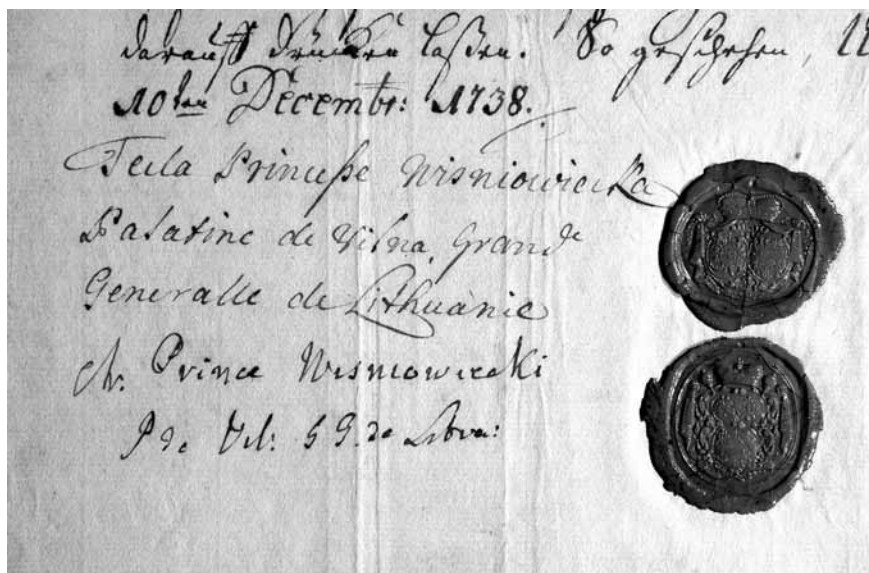 darauff drücken laßen. So geschehen,
10ten Decembr: 1738.
Tecla Princesse Wisniowiecka
Palatine de Vilna, Grande
Generalle de Lithuanie
M. Prince Wisniowiecki
P de Vil: G G. de Litva: